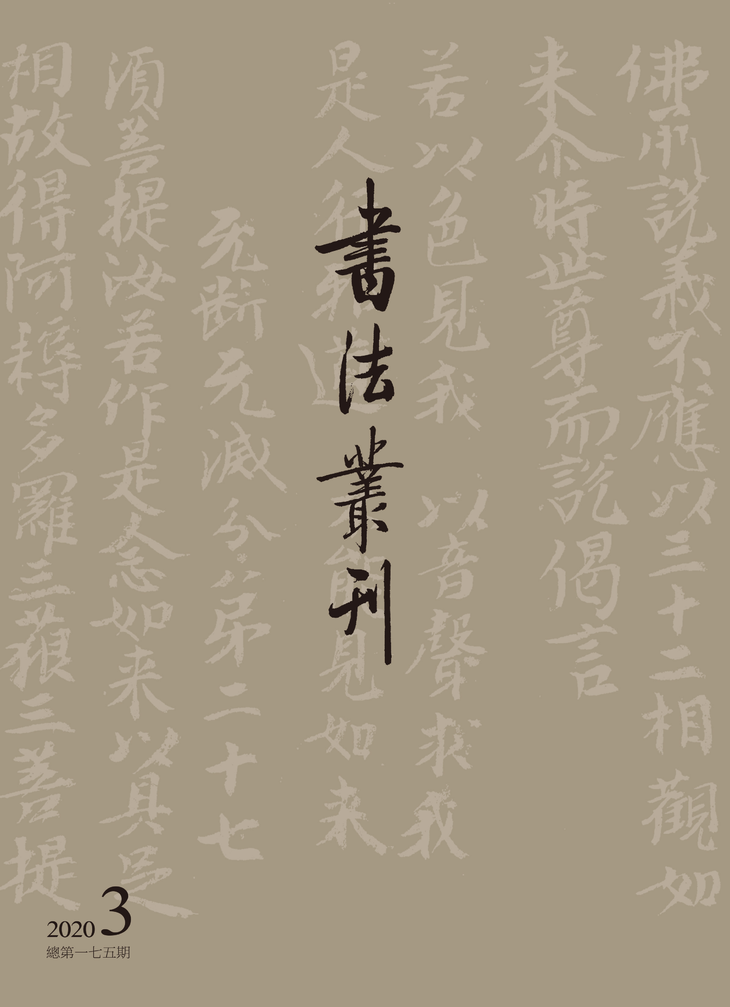 書法叢刊
佛所說義不應以三十二相觀如
来尒時世尊而說偈言
若以色見我 以音聲求我
是人行邪道 能見如来
无断无滅分弟二十七
須菩提汝若作是念如来以具足
相故得阿耨多羅三藐三菩提
2020 3
總第一七五期